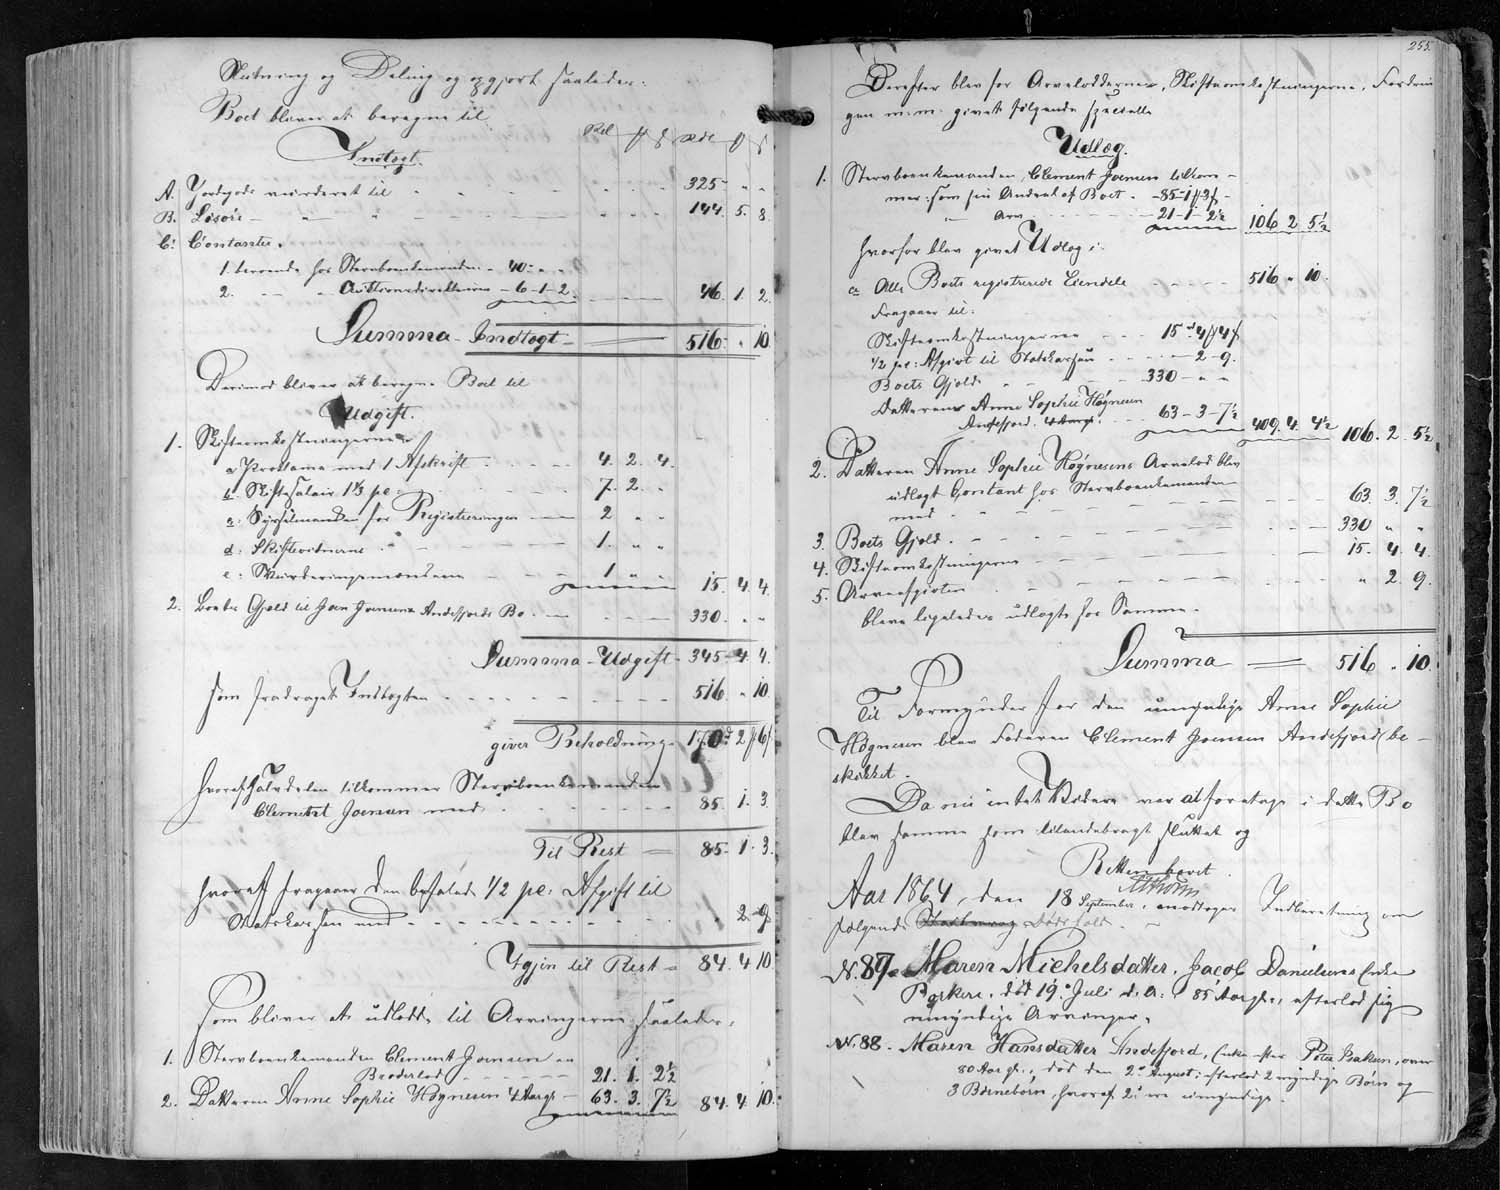 Slutning og Deling og opgjort saaledes:
Boet bliver at beregne til
Indtægt.
Rdl ß Rdl
A. Jordgods vurderet til 325 " "
B. Løsøre 144. 5. 8.
C: Contanter.
1. beroende hos Stervboenkemanden 40 " "
2. Auctionsdirektøren 6-1-2. 46. 1. 2.
Summa Indtægt 516 " 10.
Derimod bliver at beregne Boet til
Udgift.
1. Skifteomkostningerne
a Proclama med 1 Afskrift 4. 2. 4.
b. Skiftesalair 1⅓ pc: 7. 2. "
c: Sysselmanden for Registreringen 2 " "
d: Skiftevidnerne 1. " "
e: Vurderingsmændene 1 " " 15. 4. 4.
2. Boets Gjæld til Joen Joensens Andefjords Bo. 330. " "
Summa Udgift 345-4. 4.
som fradraget Indtægten 516. " 10
giver Beholdning 170. 2 ß 6 f
hvoraf Halvdelen tilkommer Stervboenkemanden
Clement Joensen med 85. 1. 3.
Til Rest 85. 1. 3.
hvoraf fragaaer den befalede 1/2 pc: Afgift til
Statskassen med " 2-9
Igjen til Rest 84. 4 10.
som bliver at udlodde til Arvingerne saaledes:
1. Stervboenkemanden Clement Joensen en
Broderlod 21. 1. 2½
2. Datteren Anne Sophie Høgnesen 4 Aargl. 63. 3. 7½ 84. 4. 10.
255.
Derefter blev for Arvelodderne, Skifteomkostningerne, Fordrin
gen m.m. givet følgende specielle
Udlæg.
1. Stervboenkemanden, Clement Joensen tilkom-
mer: som sin Andeel af Boet. 85-1 ß 3 f
Arv 21-1-2½ 106 2 5½
hvorfor blev givet Udlæg i:
a Alle Boets registrerede Eiendele 516 " 10.
Fragaaer til:
Skifteomkostningerne 15 4 ß 4 f
½ pc: Afgivt til Statskassen 2-9.
Boets Gjæld 330-" "
Datteren Anne Sophie Høgnesen
Andefjord. 4 Aargl. 63-3-7½ 409. 4. 4½ 106. 2. 5½
2. Datteren Anne Sophie Høgnesens Arvelod blev
udlagt Contant hos Stervboenkemanden
med 63. 3. 7½
3. Boets Gjæld. 330 " "
4. Skifteomkostningerne 15. 4. 4.
5. Arveafgivten " 2. 9.
bleve ligeledes udlagte for Samme.
Summa 516 " 10.
Til Formynder for den umyndige Anne Sophie
Høgnesen blev Faderen Clement Joensen Andefjord be-
skikket.
Da nu intet Videre var at foretage i dette Bo
blev samme som tilendebragt sluttet og
Retten hævet.
Aar 1864, den 18 September, modtoges Indberetning om
følgende Dødsfald.
N. 87. Maren Michelsdatter, Jacob Danielsens Enke
død 19. Juli d. A: 85 Aargl., efterlod sig
umyndige Arvinger.
N. 88. Maren Hansdatter Andefjord, Enke efter Peter Isaksen, over
80 Aargl., død den 2. August: efterlod 2 myndige Børn og
3 Børnebørn, hvoraf 2 ere umyndige.